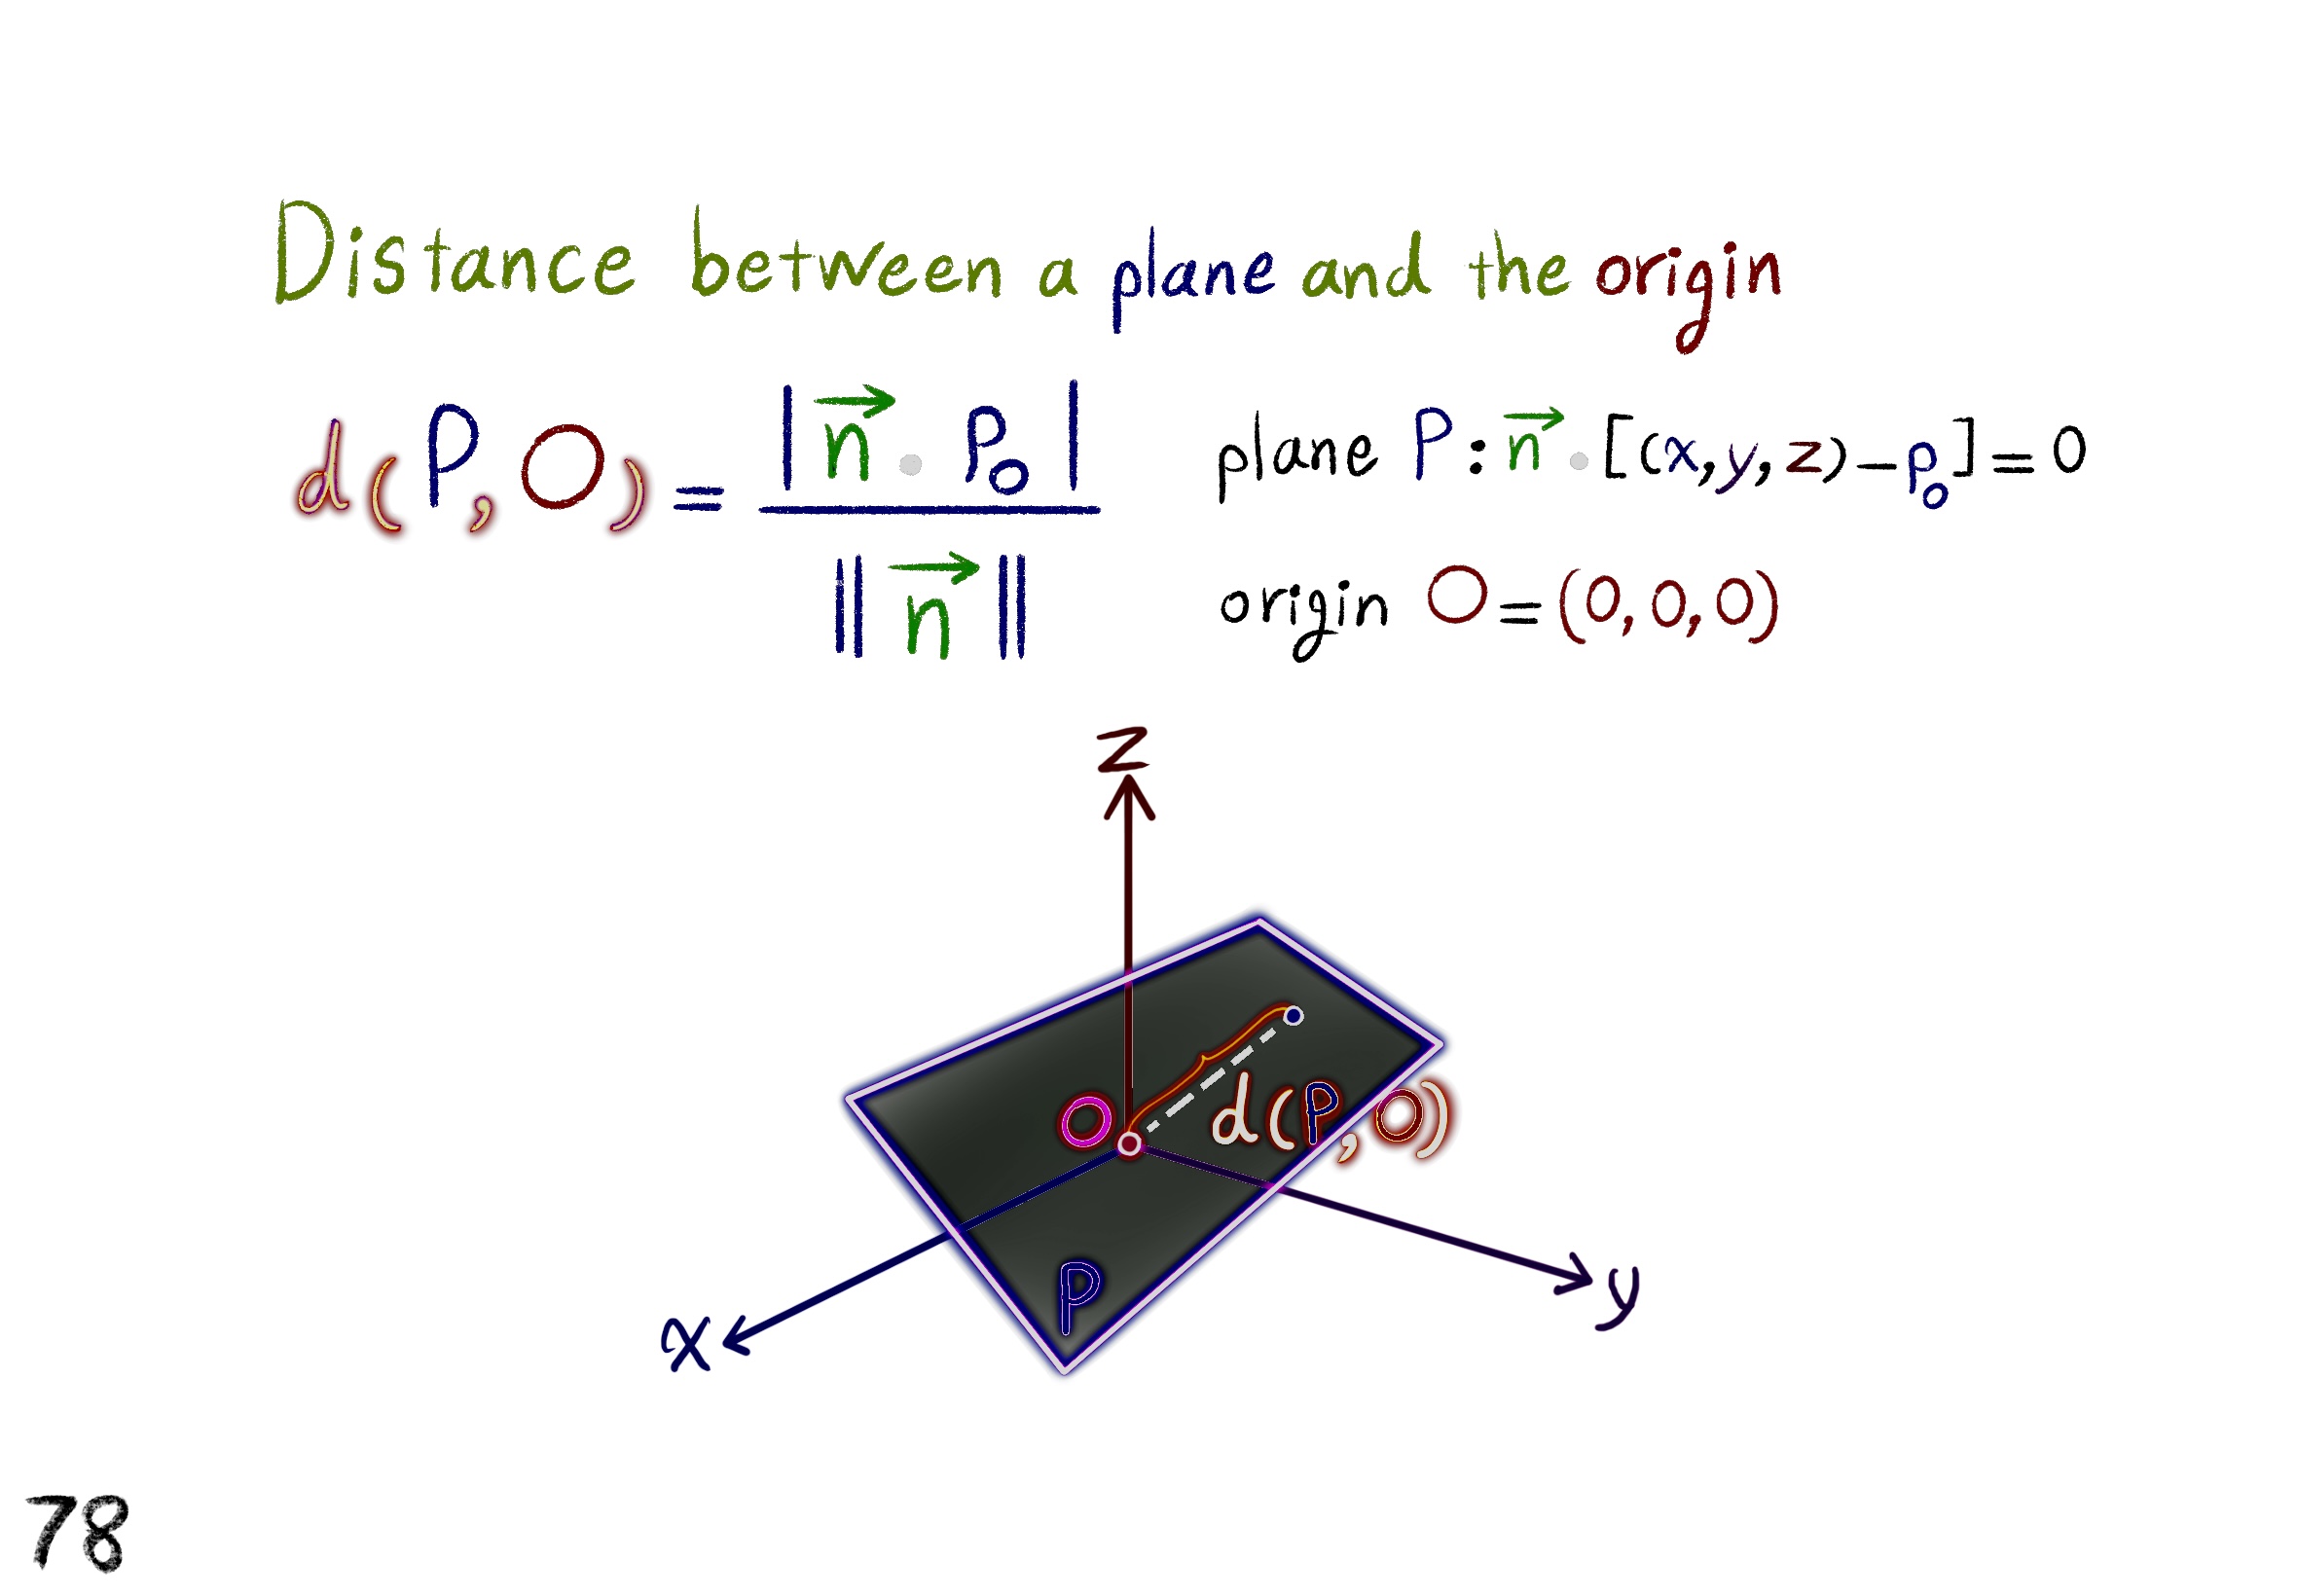 Distance between a plane and the origin
d(P,O) = |n⃗ · p₀| / ‖n⃗‖
plane P: n⃗ · [(x,y,z) – p₀] = 0
origin O = (0,0,0)
z
O
d(P,O)
P
x
y
78